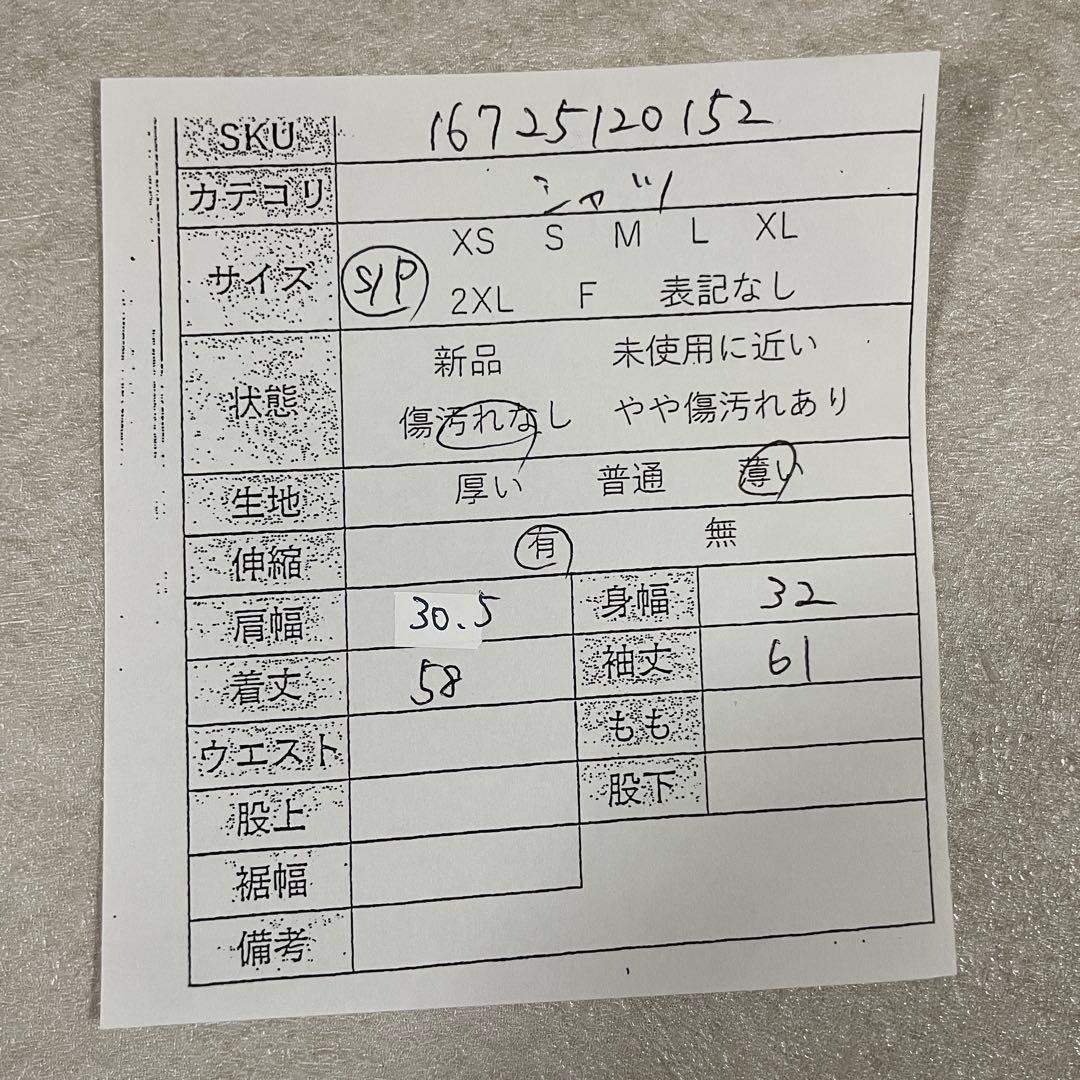 SKU 16725120152
カテゴリ シャツ
XS S M L XL
サイズ S/P
2XL F 表記なし
新品 未使用に近い
状態
傷汚れなし やや傷汚れあり
生地 厚い 普通 薄い
伸縮 有 無
肩幅 30.5 身幅 32
着丈 58 袖丈 61
ウエスト もも
股上 股下
裾幅
備考